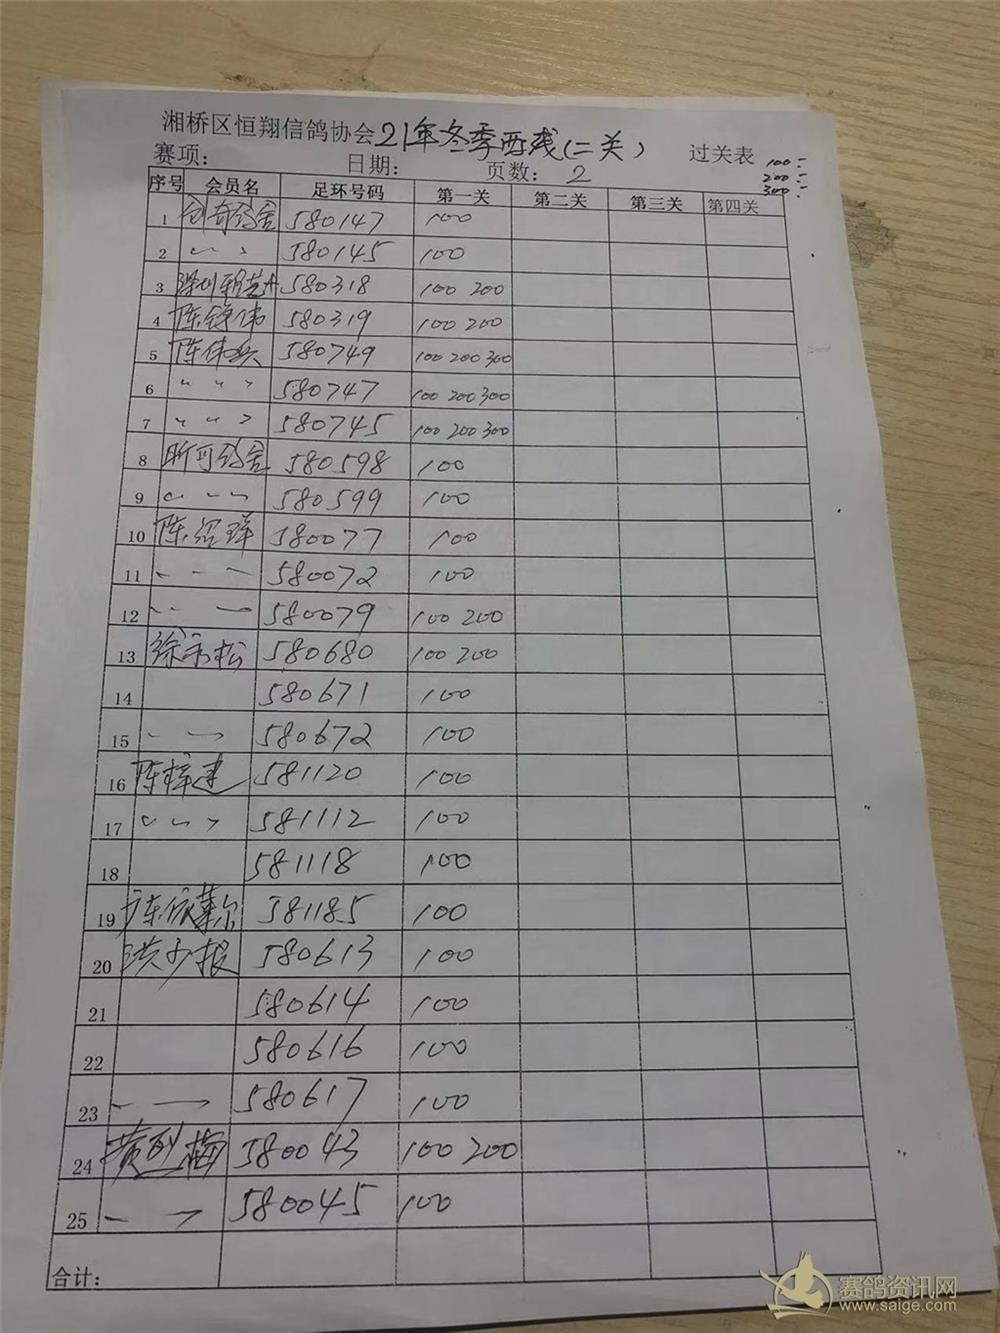 湘桥区恒翔信鸽协会21年冬季两残(二关) 过关表
赛项: 日期: 页数: 2
100 -
200 -
300 -
序号 会员名 足环号码 第一关 第二关 第三关 第四关
1 创奇鸽舍 580147 100
2 〃 〃 580145 100
3 580318 100 200
4 陈锋伟 580319 100 200
5 陈伟 580749 100 200 300
6 〃 〃 〃 580747 100 200 300
7 〃 〃 〃 580745 100 200 300
8 昕可鸽舍 580598 100
9 〃 〃 580599 100
10 陈绍 580077 100
11 580072 100
12 580079 100 200
13 徐 松 580680 100 200
14 580671 100
15 580672 100
16 陈梓建 581120 100
17 〃 〃 〃 581112 100
18 581118 100
19 广东依莱尔 581185 100
20 洪少 580613 100
21 580614 100
22 580616 100
23 580617 100
24 黄 梅 580043 100 200
25 580045 100
合计:
赛鸽资讯网
www.saige.com